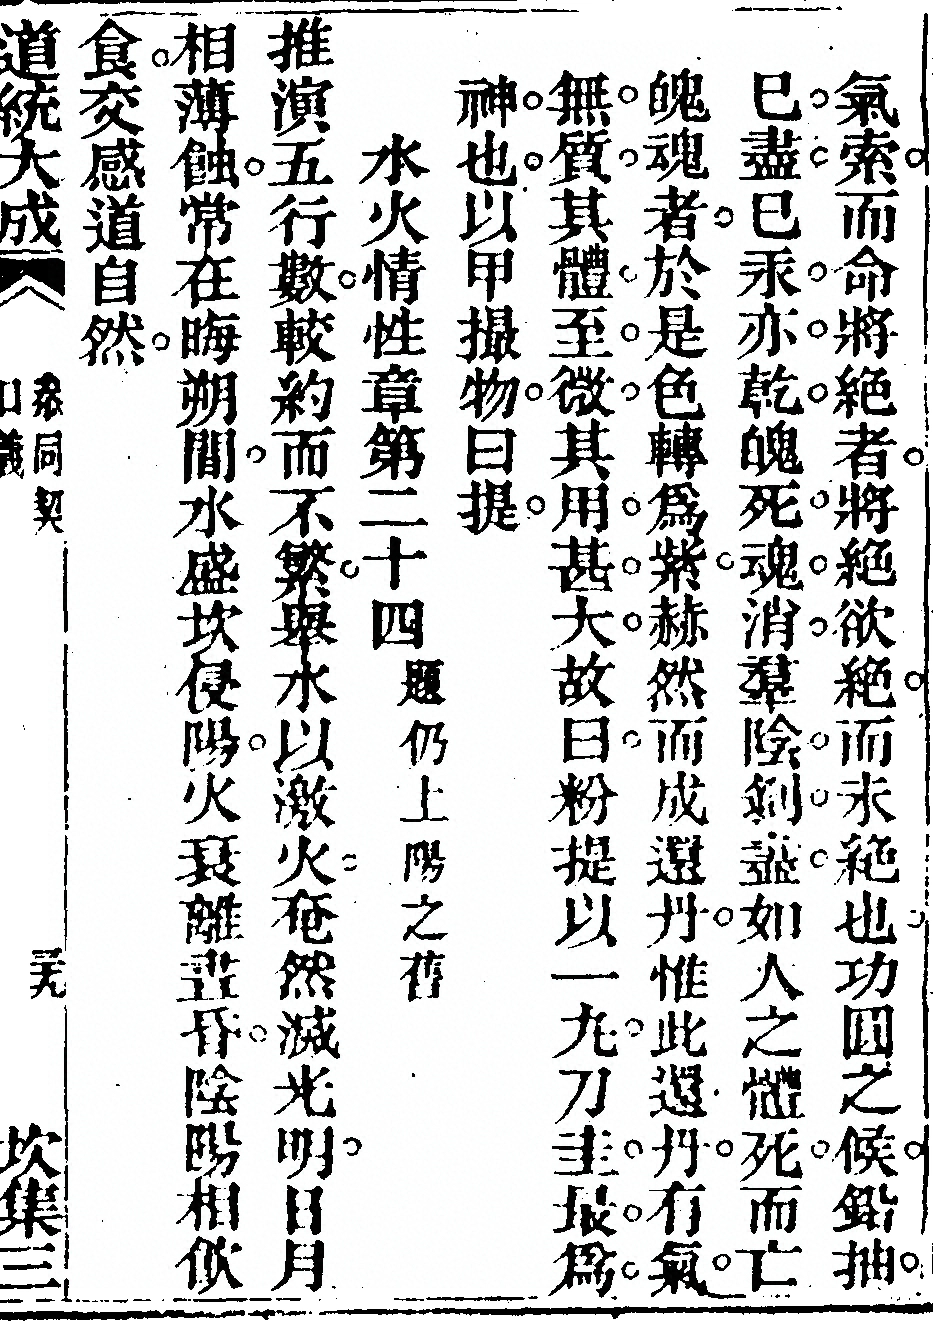 氣索而命將絕者將絕欲絕而未絕也功圓之候鉛抽
已盡巳汞亦乾魄死魂消羣陰剝盡如人之體死而亡
魄魂者於是色轉爲紫赫然而成還丹惟此還丹有氣
無質其體至微其用甚大故曰粉提以一九刀圭最爲
神也以甲撮物曰提
水火情性章第二十四題仍上陽之舊
推演五行數較約而不繁舉水以激火奄然滅光明日月
相薄蝕常在晦朔間水盛坎侵陽火衰離晝昏陰陽相飲
食交感道自然
道統大成 參同契口義 三九 坎集三